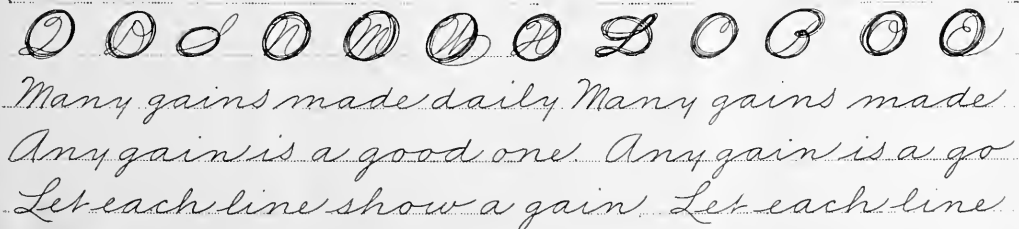 Many gains made daily Many gains made
Any gain is a good one. Any gain is a go
Let each line show a gain. Let each line